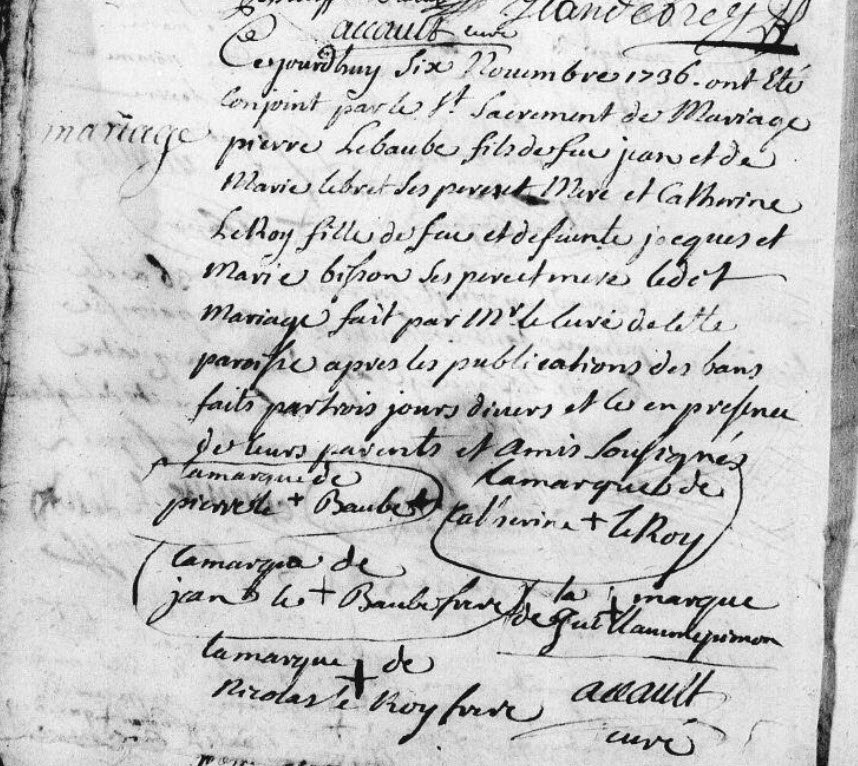 accault curé
Cejourdhuy six Novembre 1736. ont Eté
Conjoint par le St. Sacrement de Mariage
mariage
pierre Lebaube fils de feu jean et de
Marie lebret ses pere et Mere et Catherine
LeRoy fille de feu et defunte jacques et
Marie bisson ses pere et mere ledit
Mariage fait par Mr. le Curé de cette
paroisse apres les publications des bans
faits par trois jours divers et ce en presence
de leurs parents et Amis Sousignés
la marque de
pierre le + Baube
la marque de
Catherine + leRoy
la marque de
jean le + Baube frere
la + marque
de Guillaume
la marque + de
Nicolas le Roy frere
accault
curé